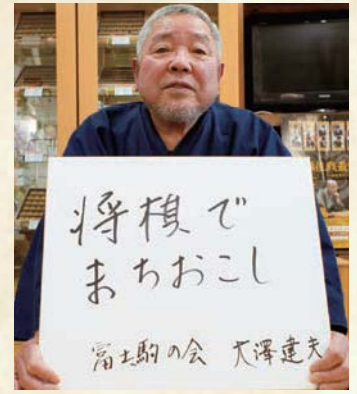 将棋で
まちおこし
富士駒の会 大澤建夫